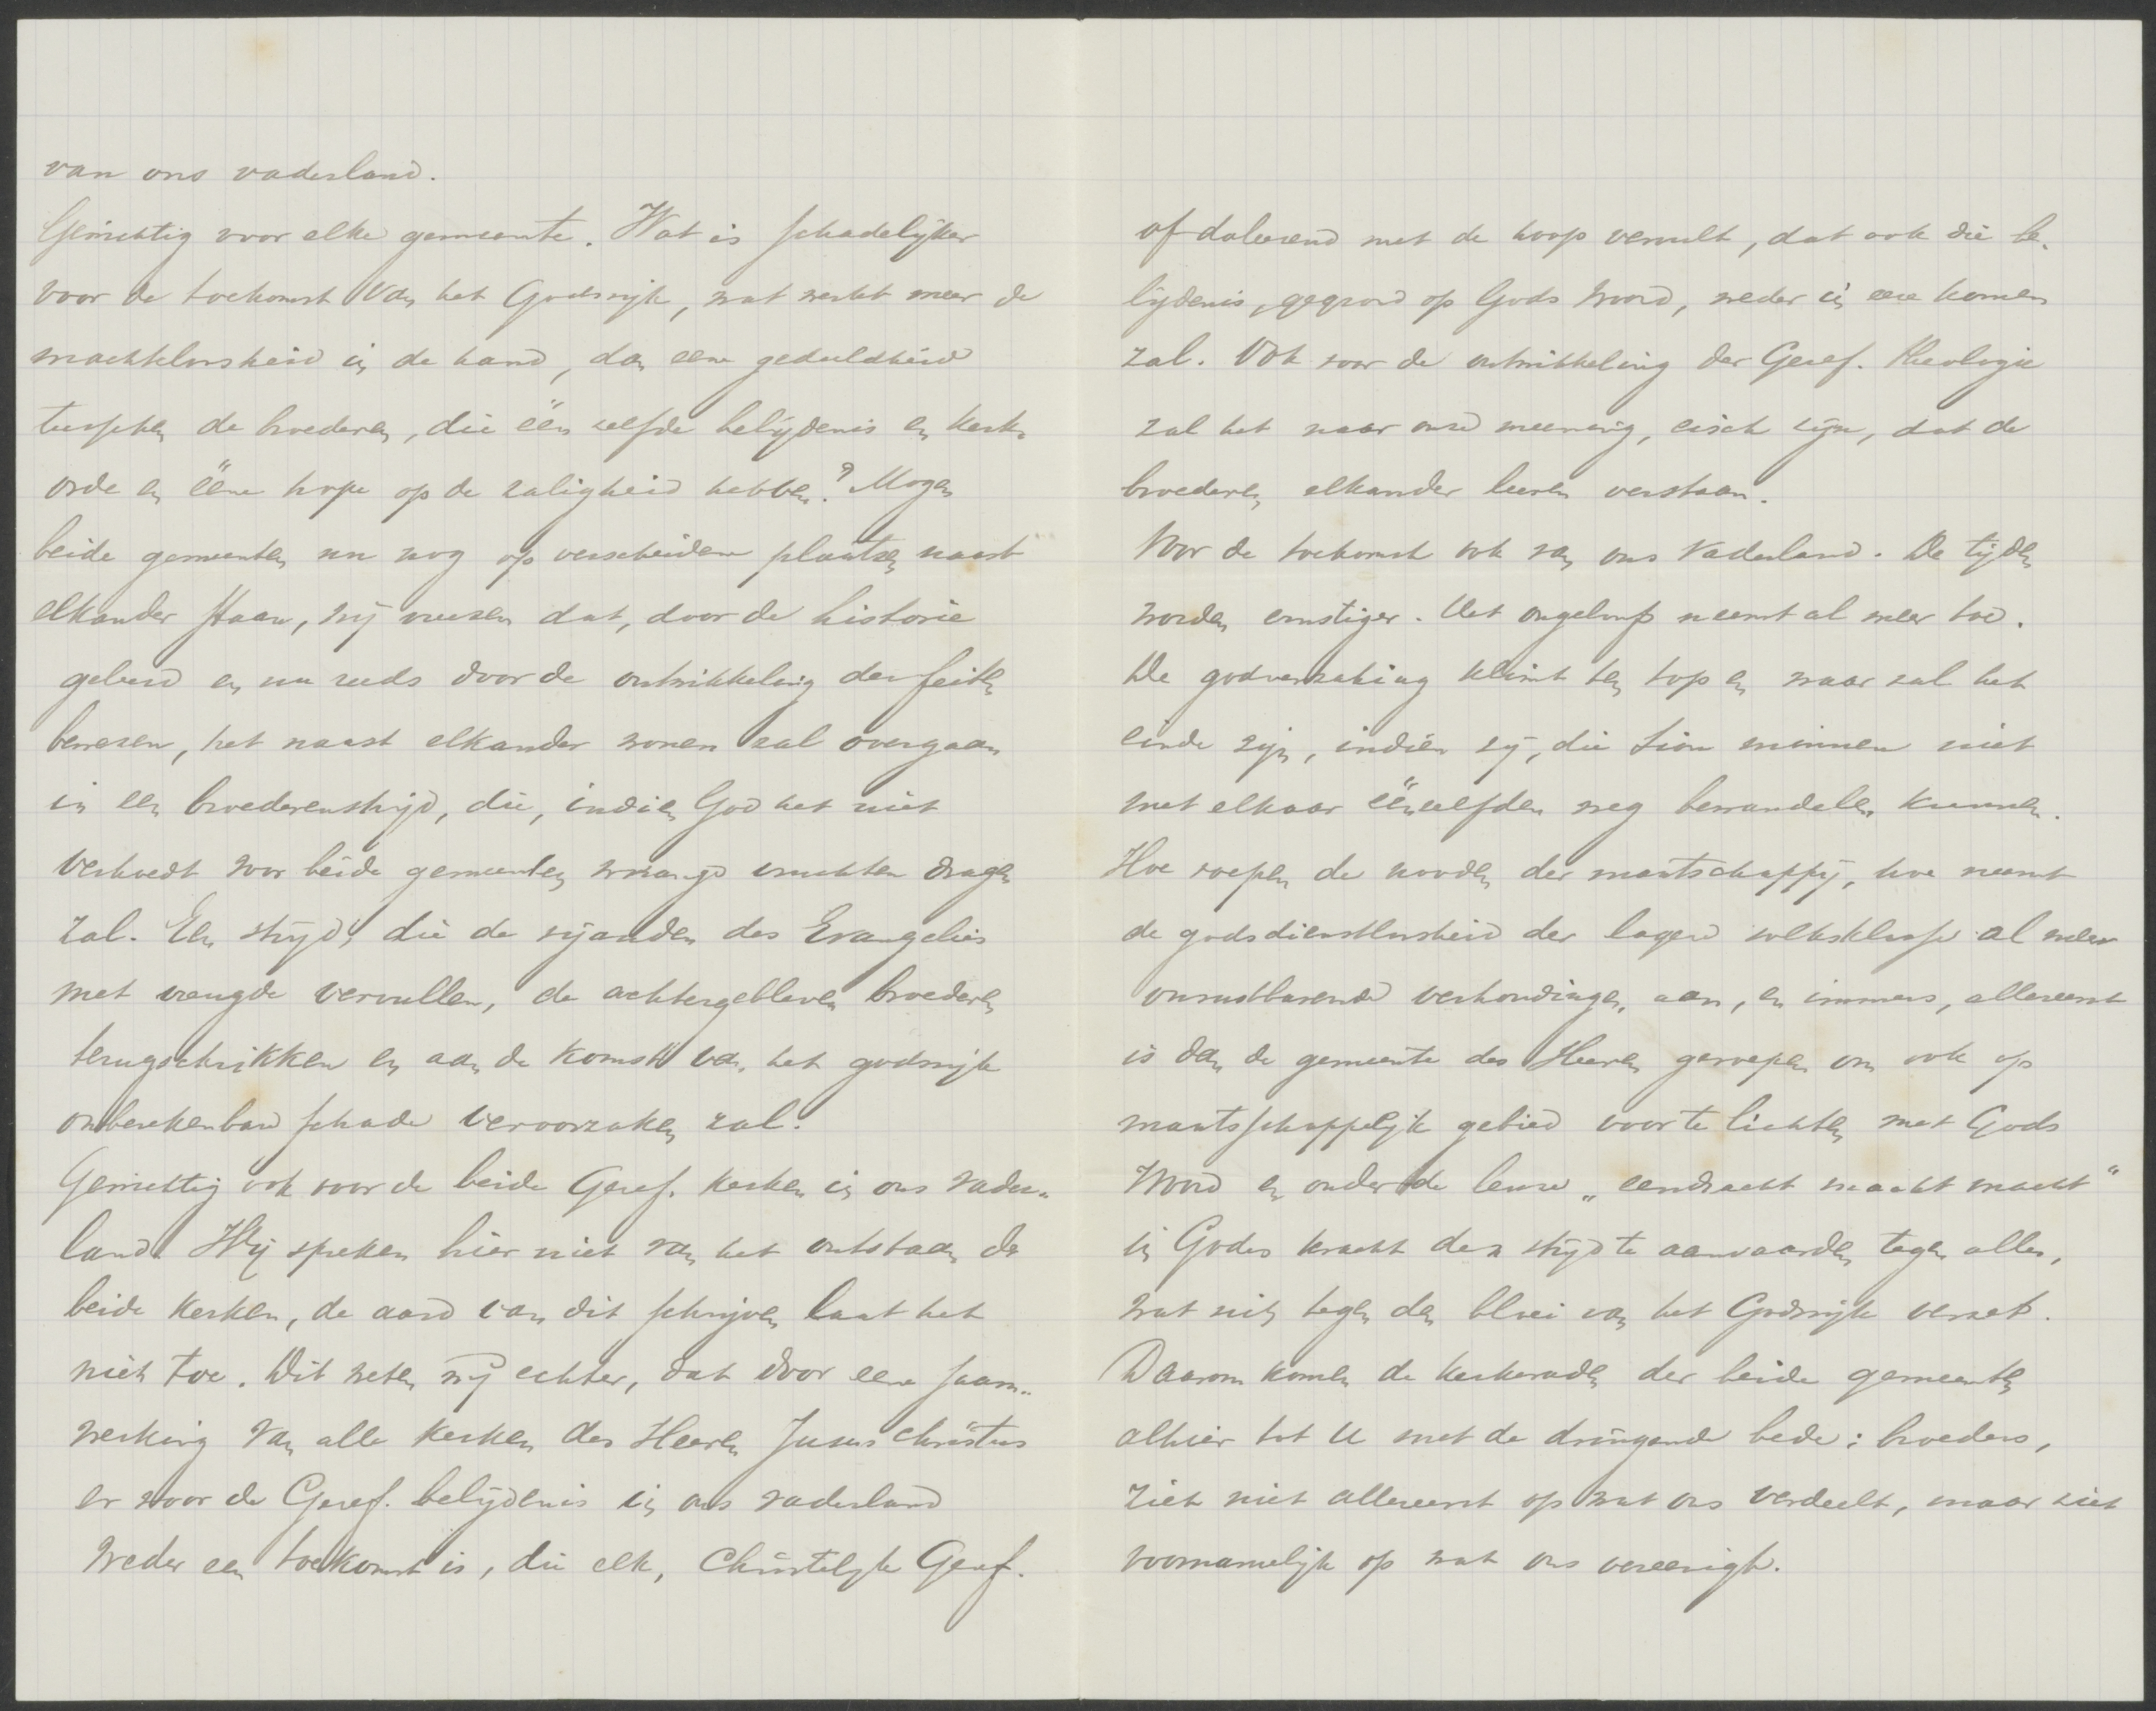 van ons vaderland.
Gewichtig voor elke gemeente. Wat is schadelijker
voor de toekomst van het Godsrijk, wat werkt meer de
machteloosheid in de hand, dan eene gedeeldheid
tusschen de broederen, die één zelfde belijdenis en kerk-
orde en ééne hope op de zaligheid hebben? Mogen
beide gemeenten nu nog op verscheidene plaatsen naast
elkander staan, wij vreezen dat, door de historie
geleerd en nu reeds door de ontwikkeling der feiten
bewezen, het naast elkander wonen zal overgaan
in een broederenstrijd, die, indien God het niet
verhoedt voor beide gemeenten wrange vruchten dragen
zal. Een strijd, die de vijanden des Evangelies
met vreugde vervullen, de achtergebleven broederen
terugschrikken en aan de komst van het godsrijk
onberekenbare schade veroorzaken zal.
Gewichtig ook voor de beide Geref. Kerken in ons vader-
land. Wij spreken hier niet van het ontstaan der
beide Kerken, de aard van dit schrijven laat het
niet toe. Dit weten wij echter, dat door eene saam-
werking van alle Kerken des Heeren Jesus Christus
er voor de Geref. belijdenis in ons vaderland
weder een toekomst is, die elk, Christelijk Geref.
of doleerend met de hoop vervult, dat ook die be-
lijdenis, gegrond op Gods Woord, weder in eere komen
zal. Ook voor de ontwikkeling der Geref. Theologie
zal het naar onze meening, eisch zijn, dat de
broederen elkander leeren verstaan.
Voor de toekomst ook van ons Vaderland. De tijden
worden ernstiger. Het ongeloof neemt al meer toe.
De godverzaking klimt ten top en waar zal het
einde zijn, indien zij, die Sion minnen niet
met elkaar éénzelfden weg bewandelen kunnen.
Hoe roepen de nooden der maatschappij, hoe neemt
de godsdienstloosheid der lagere volksklasse al meer
onrustbarende verhoudingen aan, en immers, allereerst
is dan de gemeente des Heeren geroepen om ook op
maatschappelijk gebied voor te lichten met Gods
Woord en onder de leuze „eendracht maakt macht"
in Godes kracht den strijd te aanvaarden tegen alles,
wat zich tegen den bloei van het Godsrijk verzet.
Daarom komen de Kerkeraden der beide gemeenten
alhier tot U met de dringende bede: broeders,
ziet niet allereerst op wat ons verdeelt, maar ziet
voornamelijk op wat ons vereenigt.